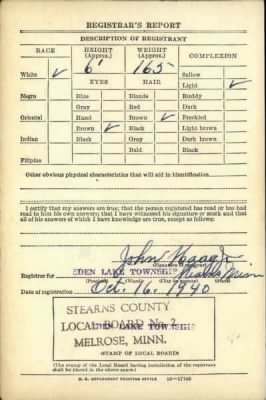 REGISTRAR'S REPORT
DESCRIPTION OF REGISTRANT
RACE HEIGHT (Approx.) WEIGHT (Approx.) COMPLEXION
White ✓ 6' 165 Sallow
EYES HAIR Light ✓
Negro Blue Blonde Ruddy
Gray Red Dark
Oriental Hazel Brown ✓ Freckled
Brown ✓ Black Light brown
Indian Black Gray Dark brown
Bald Black
Filipino
Other obvious physical characteristics that will aid in identification
I certify that my answers are true; that the person registered has read or has had
read to him his own answers; that I have witnessed his signature or mark and that
all of his answers of which I have knowledge are true, except as follows:
John
Registrar for EDEN LAKE TOWNSHIP Stearns Minn
Date of registration Oct. 16. 1940
STEARNS COUNTY
LOCAL BOARD No. 2
EDEN LAKE TOWNSHIP
MELROSE, MINN.
(STAMP OF LOCAL BOARD)
(The stamp of the Local Board having jurisdiction of the registrant
shall be placed in the above space.)
U. S. GOVERNMENT PRINTING OFFICE